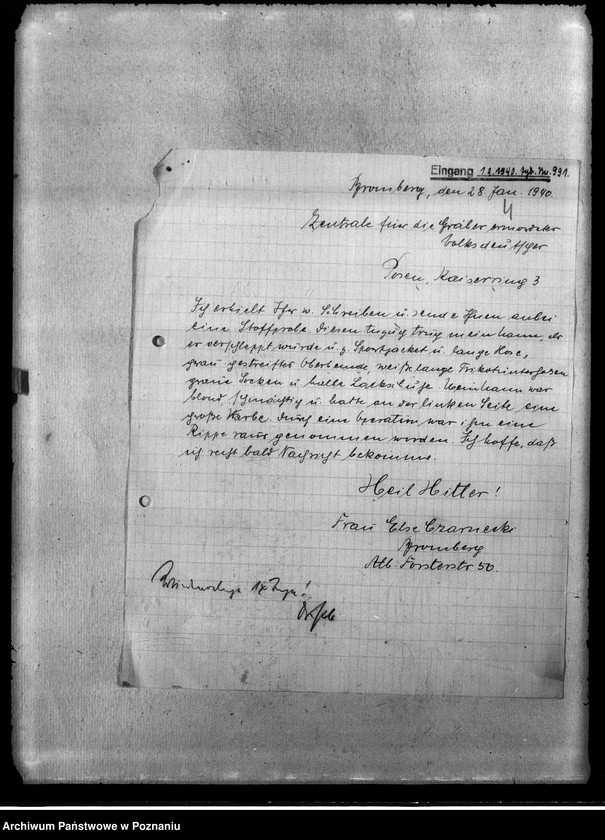 Eingang 1.2.1940. Nr. 991.
Bromberg, den 28. Jan. 1940.
4
Zentrale für die Gräber ermordeter
Volksdeutscher
Posen, Kaiserring 3
Ich erhielt Ihr w. Schreiben u. sende Ihnen anbei
eine Stoffprobe. Diesen Anzug trug mein Mann, als
er verschleppt wurde u. z. Sportjacket u. lange Hose,
grau gestreiftes Oberhemd, weiße lange Trikotunterhosen
graue Socken u. halbe Lackschuhe. Mein Mann war
blond schmächtig u. hatte an der linken Seite eine
große Narbe. Durch eine Operation, war ihm eine
Rippe raus genommen worden. Ich hoffe, daß
ich recht bald Nachricht bekomme.
Heil Hitler!
Frau Else Czarnecki
Bromberg
Alb. Forsterstr 50.
Archiwum Państwowe w Poznaniu